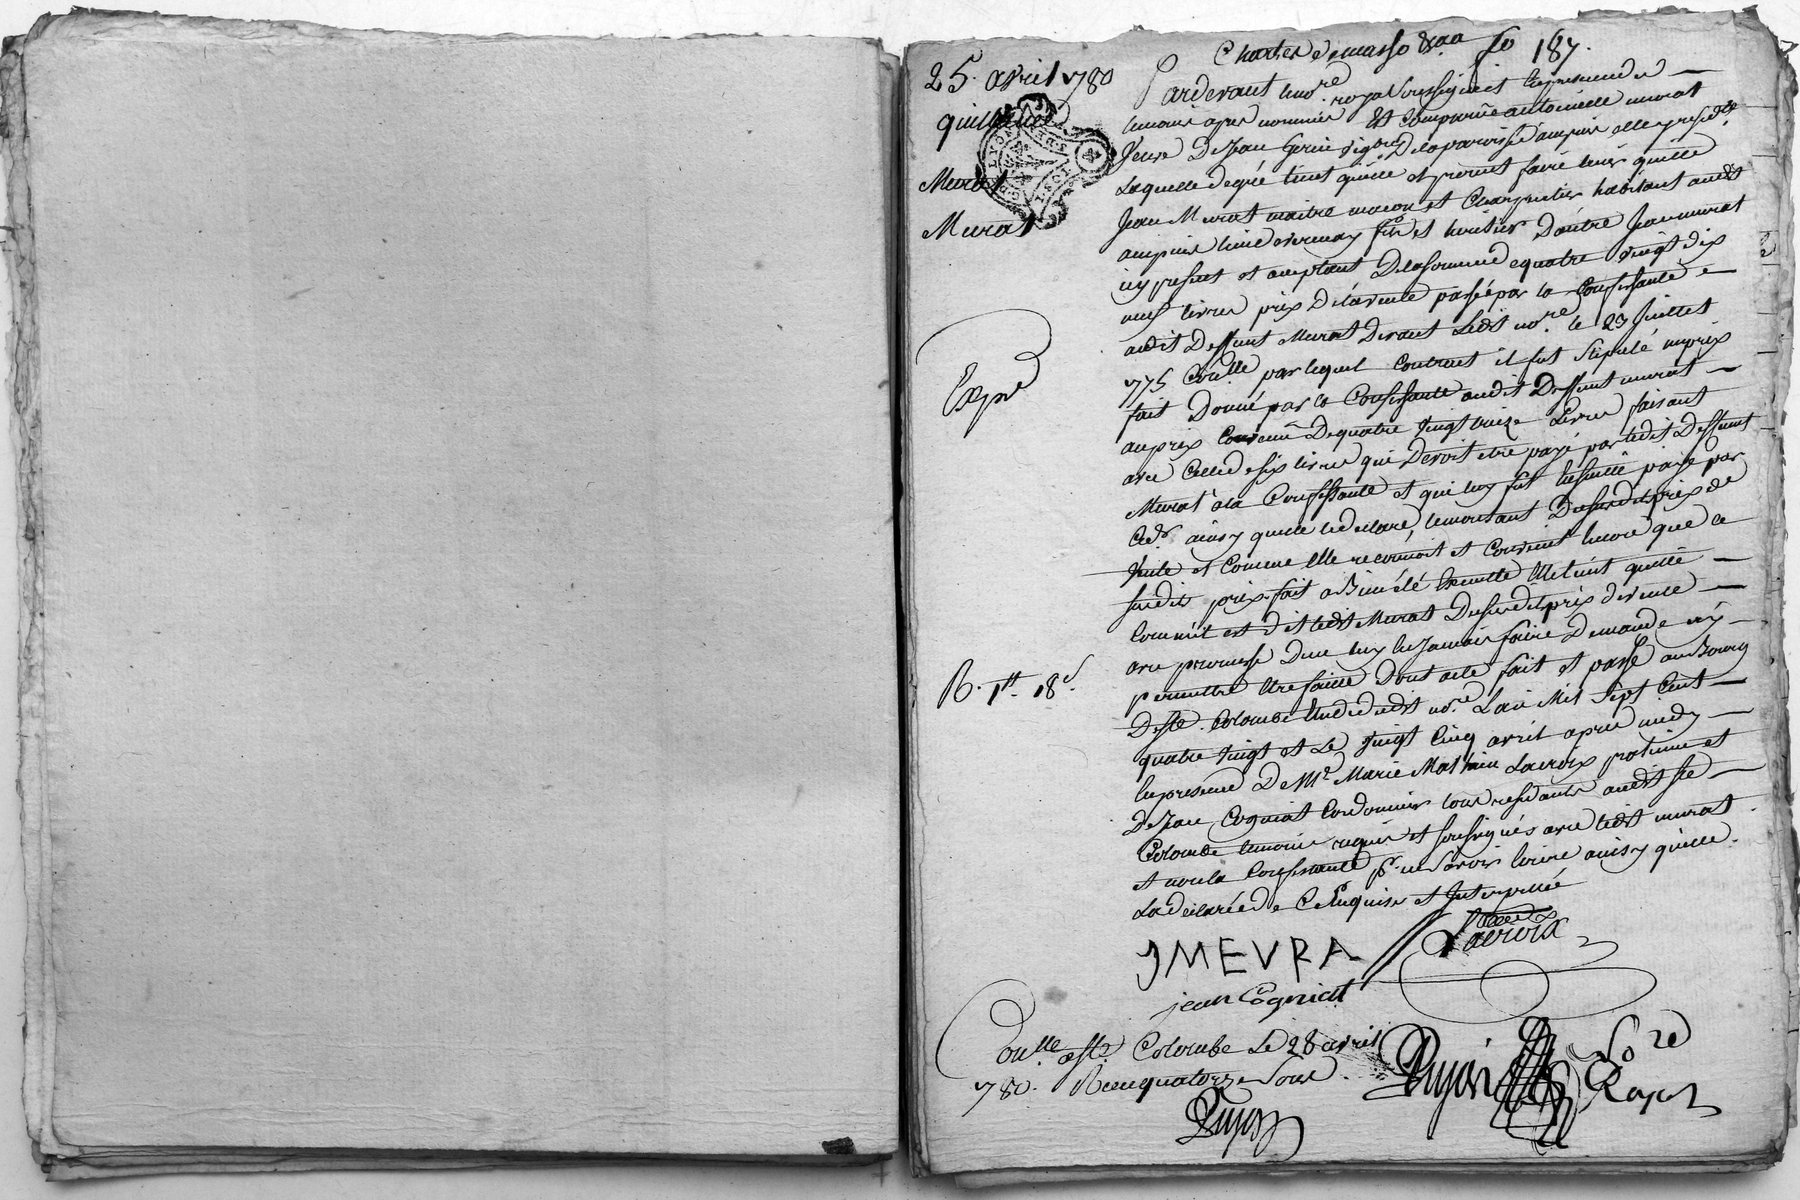 25. avril 1780
quittance
Murat
Murat
Expé
R. 1tt. 18s.
187.
Pardevant le nore. royal soussigné et en presence des
temoins apres nommés Est Comparüe antoinette murat
veuve De Jean Gerin vigon De la paroisse d'ampuis elle presente
Laquelle de gré tient quitte et promet faire tenir quitte
Jean Murat maitre macon et Charpentier habitant audit
ampuis lieu de verenay fils et heritier D'autre Jean murat
icy present et acceptant De la somme de quatre vingt dix
neuf livres prix De la vente passée par la Confessante
audit Deffunt Murat Devant Ledit nore. le 23 Juillet
1775 Conlle. par lequel Contract il fut stipulé un prix
fait Donné par la Confessante audit Deffunt murat
au prix Convenu De quatre vingt treize Livres faisant
avec Celle de six livres qui Devoit etre payé par ledit Deffunt
Murat a la Confessante et qui luy fut Ensuitte payé par
ainsy quelle le declare, le montant Du susdit prix de
vente et Comme Elle reconnoit et Convient Encore que ce
susdit prix fait a Bien été Executté Elle tient quitte
Comme est dit ledit Murat Du susdit prix de vente
avec promesse De ne luy En Jamais faire Demande ny
permettre Etre faitte Dont acte fait et passé au Bourg
De Ste. Colombe Etude dudit nore. L'an Mil sept Cent
quatre vingt et Le vingt Cinq avril apres midy
En presence De Me. Marie Mathieu Lacroix praticien et
De Jean Cogniat Cordonnier tous residants audit Ste
Colombe temoins requis et soussignés avec ledit murat
et non la Confessante pr. ne savoir Ecrire ainsy quelle
La declaré de Ce Enquise et Interpellée
JMEVRA
Lacroix
jean Cogniat
Conlle. a Ste. Colombe Le 28 avril
1780. Recu quatorze sous
Guyon
Guyon
nore
Royal